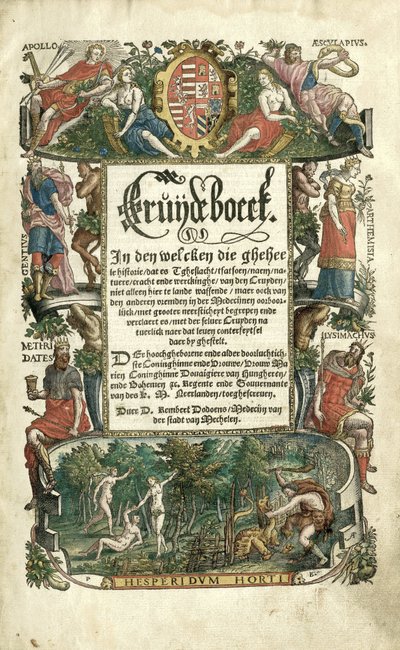 APOLLO
ÆSCULAPIUS
GENTIUS
ARTHEMISIA
MĒTHRI
DATES
LYSIMACHUS
Cruÿdeboeck.
In den welcken die gheheе
le historie/dat es Tgheslacht/tfatsoen/naem/na-
tuere/cracht ende werckinghe/van den Cruyden/
niet alleen hier te lande wassende/maer oock van
den anderen vremden in der Medecijnen oorboor-
lijck/met grooter neersticheyt begrepen ende
verclaert es/met der seluer Cruyden na-
tuerlick naer dat leuen conterfeytsel
daer by ghestelt.
Der hoochgheborene ende alder doorluchtich-
ste Coninghinne ende Vrouwe/Vrouw Ma-
rien Coninghinne Douaigiere van Hungheren/
ende Bohemen ꝛc. Regente ende Gouuernante
van des K. M. Neerlanden/toegheschreuen.
Duer D. Rembert Dodoens/Medecijn van
der stadt van Mechelen.
P
B
HESPERIDVM HORTI